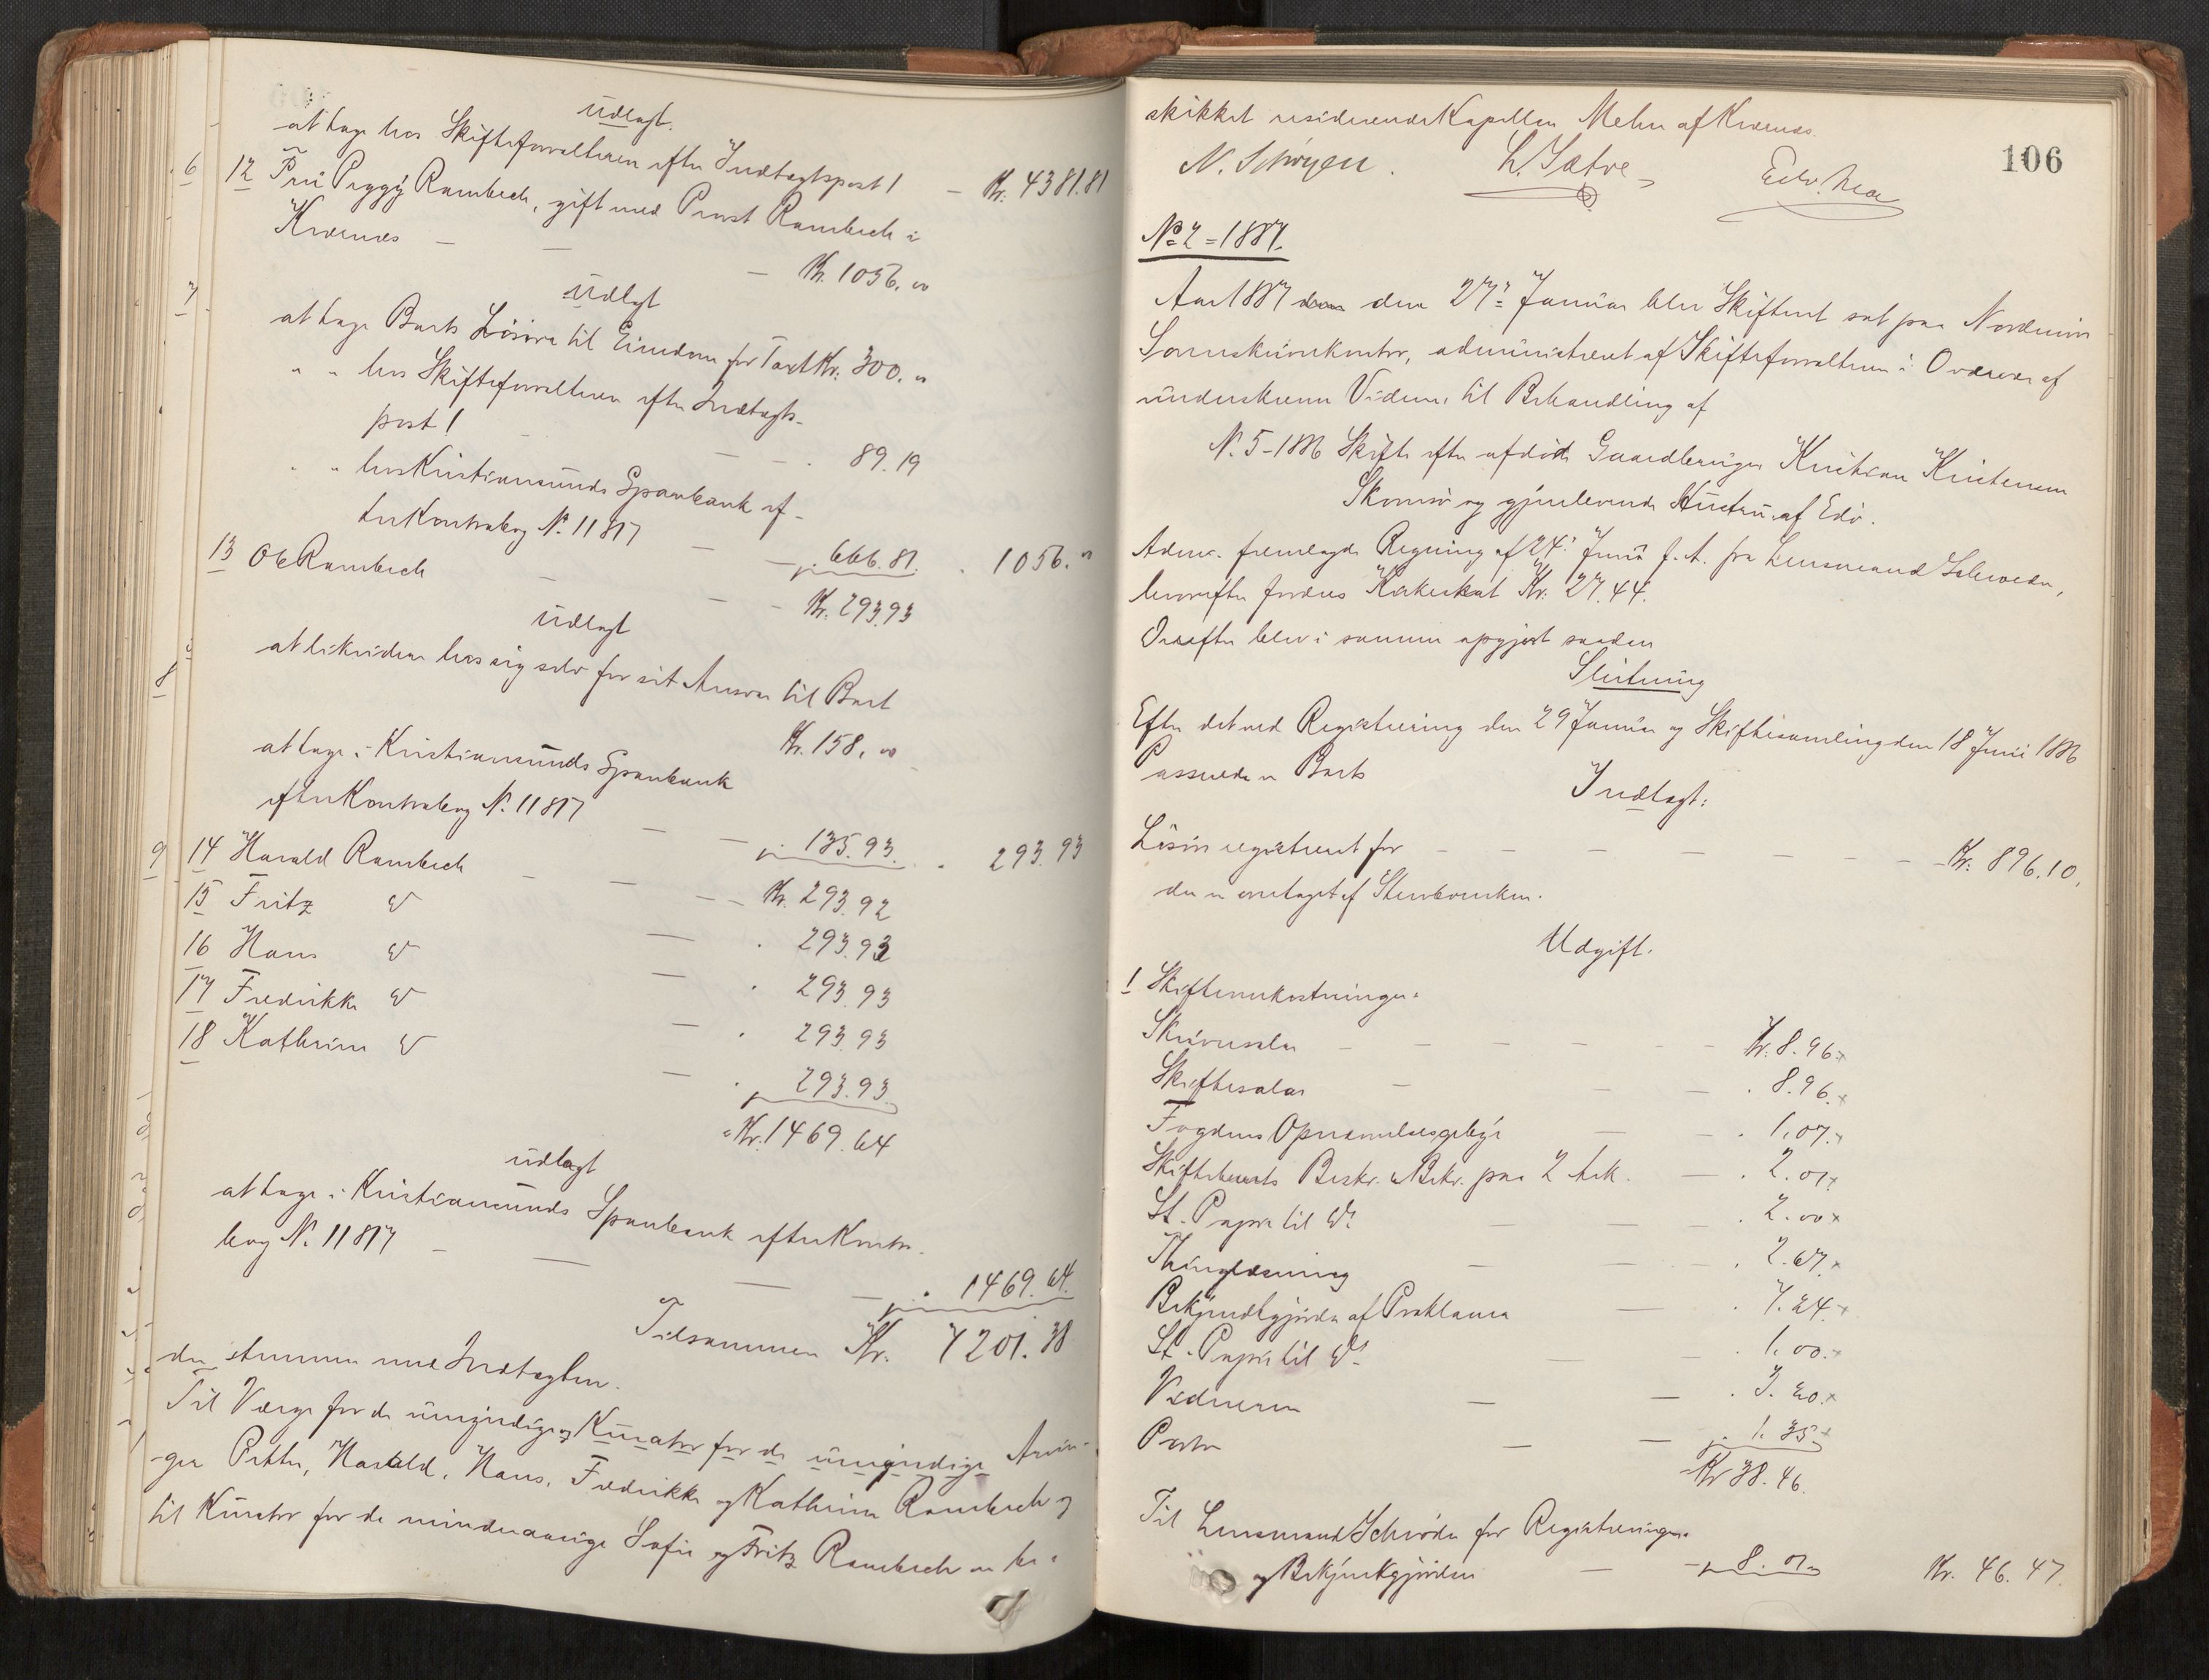 udlagt.
at tage hos Skifteforvalteren efter Indtægtspost 1 — Kr. 4381.81
12 Fru Peggy Rambech, gift med Provst Rambech i
Kvernes — — — Kr. 1056.00
udlagt
at tage Boets Løsøre til Eiendom for Taxt Kr. 300.00
" " hos Skifteforvalteren efter Indtægts-
post 1 — — . 89.19
" " hos Kristiansunds Sparebank ef-
ter Kontrabog N. 11817 — — . 666.81. . 1056.00
13 Ole Rambech — — — Kr. 293.93
udlagt
at likvidere hos sig selv for sit Ansvar til Boet
Kr. 158.00
at tage i Kristiansunds Sparebank
efter Kontrabog N. 11817 — — . 135.93. . 293.93
14 Harald Rambech — — — Kr. 293.92
15 Fritz do — . 293.93
16 Hans do — . 293.93
17 Fredrikke do — . 293.93
18 Kathrine do — . 293.93.
Kr. 1469.64
udlagt
at tage i Kristiansunds Sparebank efter Kontra-
bog N. 11817 — — — . 1469.64.
Tilsammen Kr. 7201.38
der stemmer med Indtægten.
Til Værge for de umyndige og Kurator for de umyndige Arvin-
ger Petter, Harald, Hans, Fredrikke og Kathrine Rambech og
til Kurator for de mindreaarige Sofie og Fritz Rambech er be-
106
skikket residerende Kapellan Mehn af Kvernes.
N. Schøyen. L. Sætre Edv. Moe
No 2 = 1887.
Aar 1887 den 27de Januar blev Skifteret sat paa Nordmøre
Sorenskriverkontor, administreret af Skifteforvalteren i Overvær af
underskrevne Vidner, til Behandling af
N. 5-1886 Skifte efter afdøde Gaardbruger Kristian Kristensen
Skomsø og gjenlevende Hustru af Edø.
Adm. fremlagde Regning af 24de Juni f. A. fra Lensmand Schrøder,
hvorefter fordres Kirkeskat Kr. 27.44.
Derefter blev i samme opgjort saaden
Slutning
Efter det ved Registrering den 29 Januar og Skiftesamling den 18 Juni 1886
Passerede er Boets
Indtægt:
Løsøre registreret for — — — — — Kr. 896.10.
der er overtaget af Stervboenken.
Udgift.
1 Skifteomkostninger:
Skriversalær — — — Kr. 8.96.
Skiftesalær — — . 8.96.
Fogdens Opnævnelsesgebyr — — . 1.07.
Skiftebrevets Beskr. & Bekr. paa 2 Ark. — . 2.01.
St. Papir til Do — — . 2.00
Thinglæsning — — . 2.67.
Bekjendtgjørelse af Proklama — . 7.24.
St. Papir til Do — — . 1.00.
Vidnerne — — . 3.20.
Porto — — . 1.35
Kr 38.46.
Til Lensmand Schrøder for Registreringen
og Bekjendtgjørelsen — — . 8.01 Kr. 46.47.